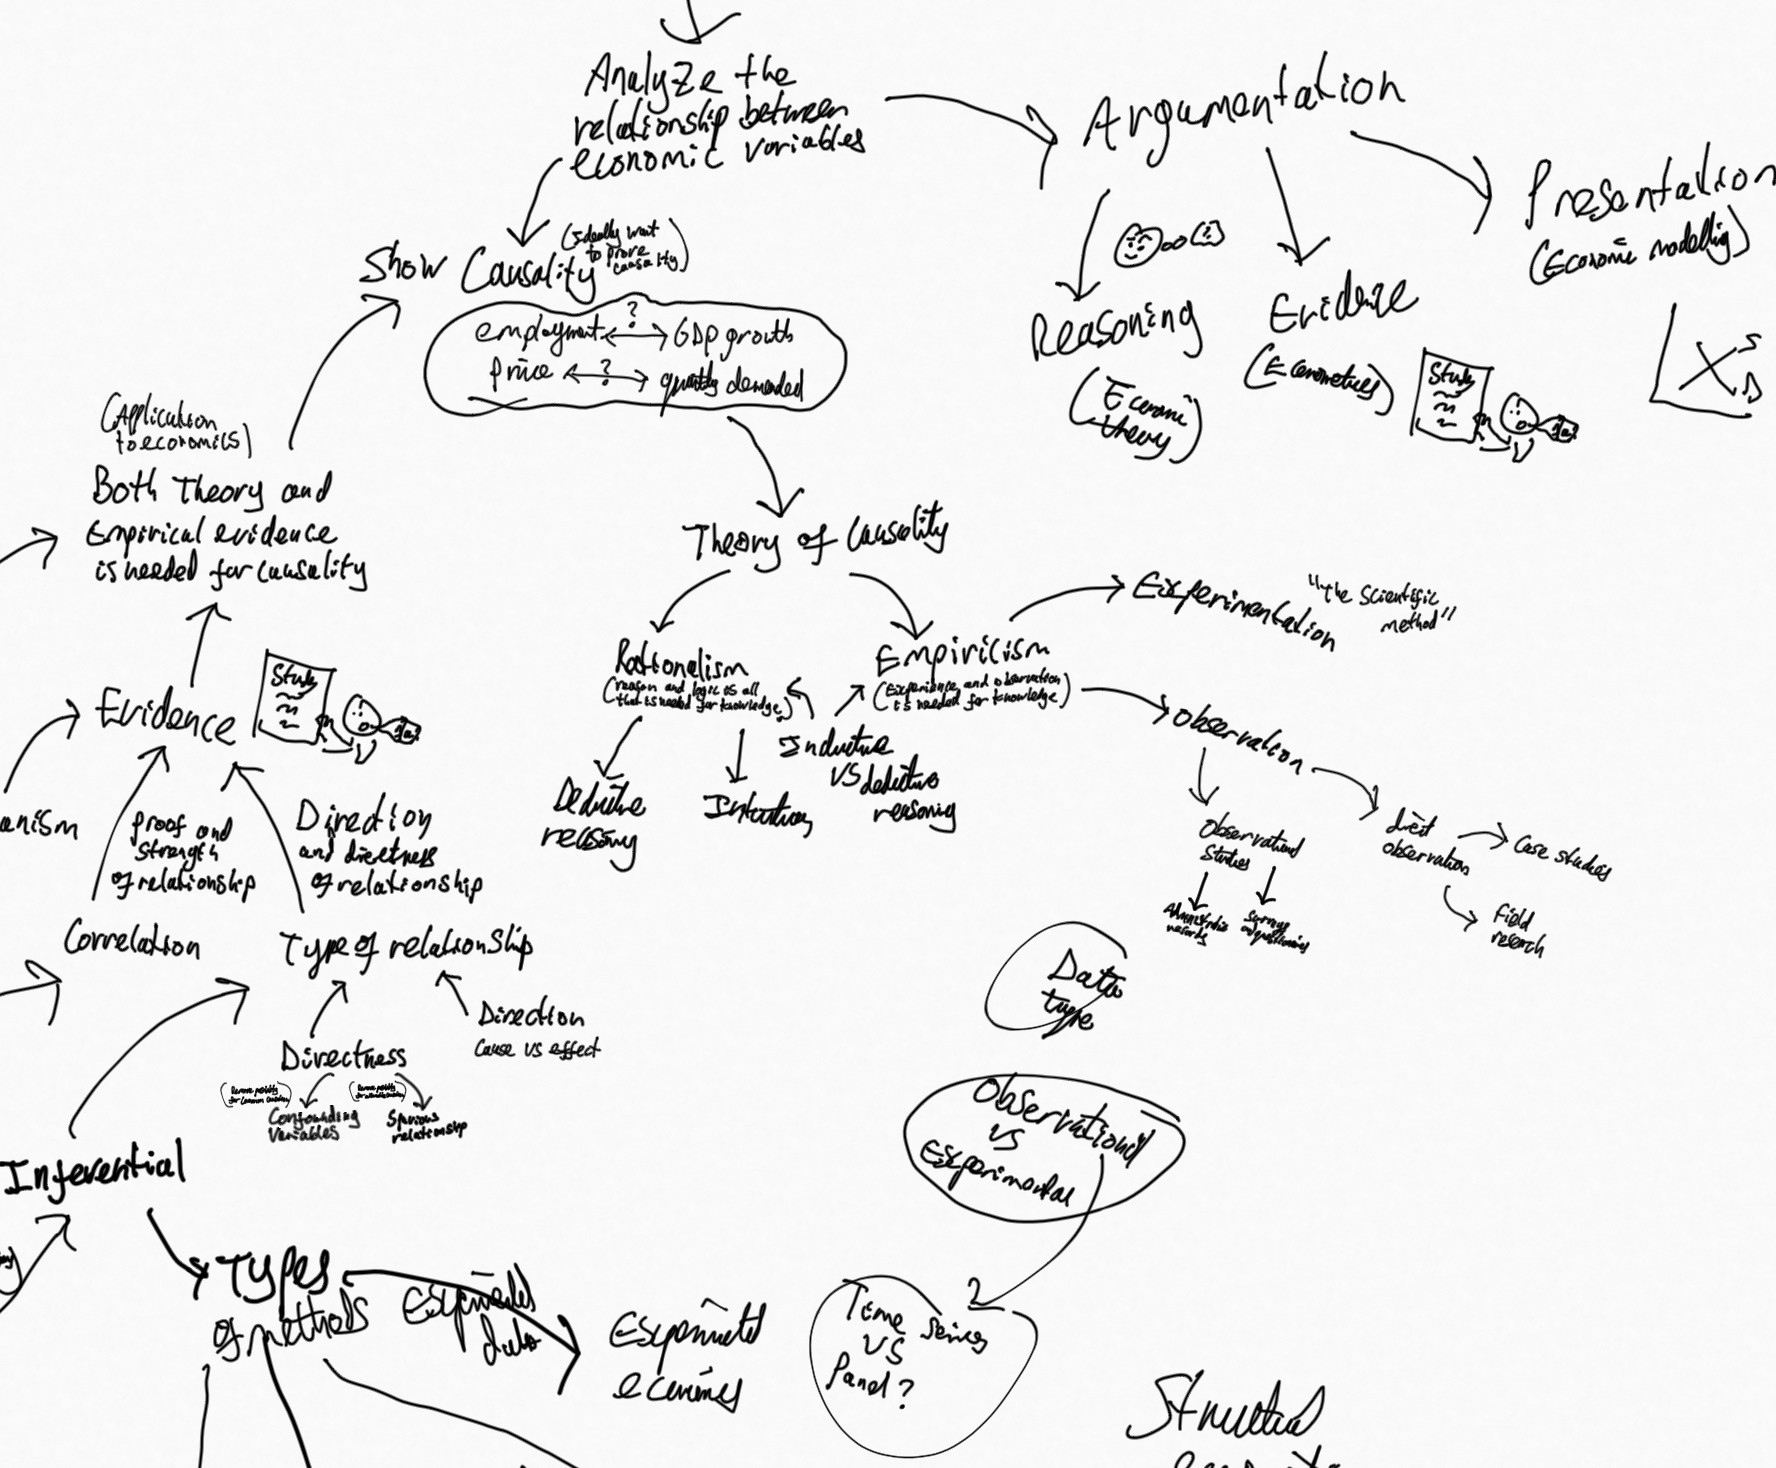 Analyze the
relationship between
economic variables
Argumentation
Presentation
(Economic modelling)
S
D
Reasoning
(Economic
theory)
Evidence
(Econometrics)
Study
Show Causality
(Ideally want
to prove
causality)
employment ←?→ GDP growth
Price ←?→ quantity demanded
(Application
to economics)
Both Theory and
Empirical evidence
is needed for causality
Theory of Causality
Rationalism
(reason and logic is all
that is needed for knowledge)
Empiricism
(Experience and observation
is needed for knowledge)
Experimentation
"the scientific
method"
Inductive
vs deductive
reasoning
Deductive
reasoning
Intuition
Observation
Observational
Studies
Administrative
records
Surveys
direct
observation
Case studies
field
research
Evidence
Study
anism
proof and
strength
of relationship
Direction
and directness
of relationship
Correlation
Type of relationship
Directness
Direction
Cause vs effect
Confounding
Variables
Spurious
relationship
Data
type
Observational
vs
Experimental
Time series
vs
Panel?
Inferential
Types
of methods
Experimental
data
Experimental
Structural